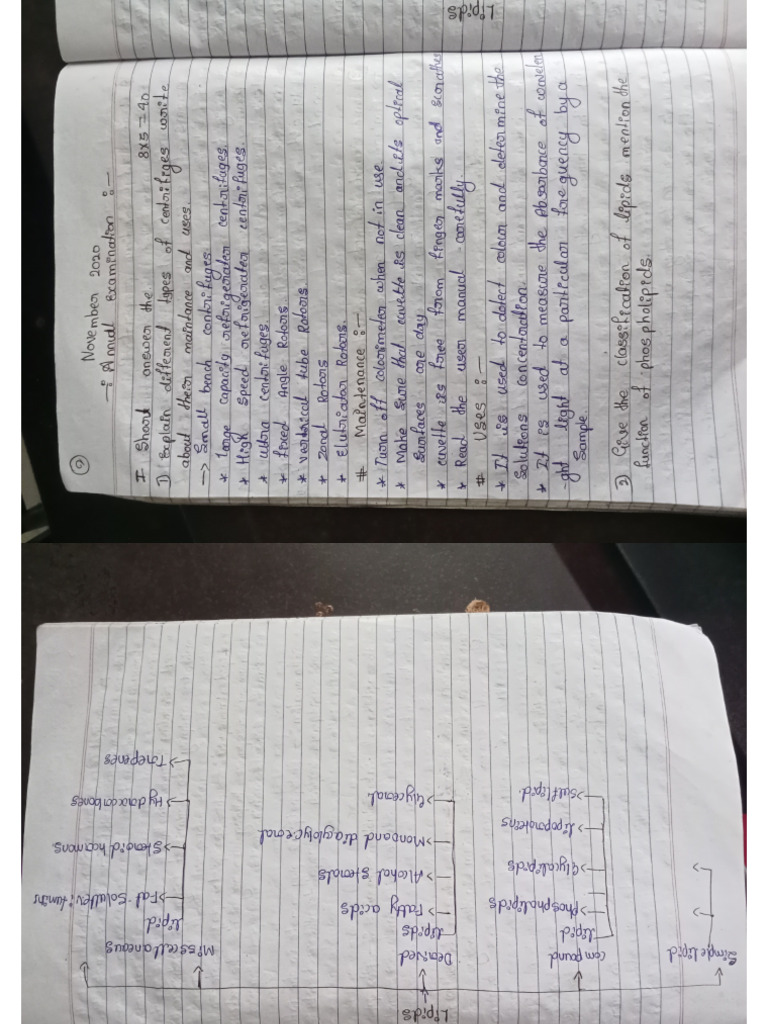 9
November 2020
-: Annual Examination :-
I Short answer the 8x5=40
1) Explain different types of centrifiges write
about their maintance and uses.
→ Small bench centrifuges.
* Large capacity refrigerater centrifuges.
* High Speed refrigerater centrifuges.
* ultra centrifuges.
* fixed Angle Rotors
* vertical tube Rotors
* Zonal Rotors
* Elutriator Rotors.
# Maintenance :-
* Turn off colorimeter when not in use.
* Make sure that cuvette is clean and its optical
surfaces are day
* cuvette is free from finger marks and scratches
* Read the user manual carefully
# Uses :-
* It is used to detect colour and determine the
solutions concentration.
* It is used to measure the Absorbance of wavelen
-ght light at a particular frequency by a
Sample.
2) Give the classification of lipids mention the
function of phospholipids.
Lipids
Lipids
Simple lipid
compound
lipid
→ Phospholipids
→ Glycolipids
→ Lipoproteins
→ Sulflipid
Derived
Lipids
→ Fatty acids
→ Alcohol sterols
→ Mono and diaglolyceral
→ Glyceral
Misscellaneous
lipid
→ Fat-Soluble vitamins
→ Steroid harmons
→ Hydrocarbones
→ Torepenes